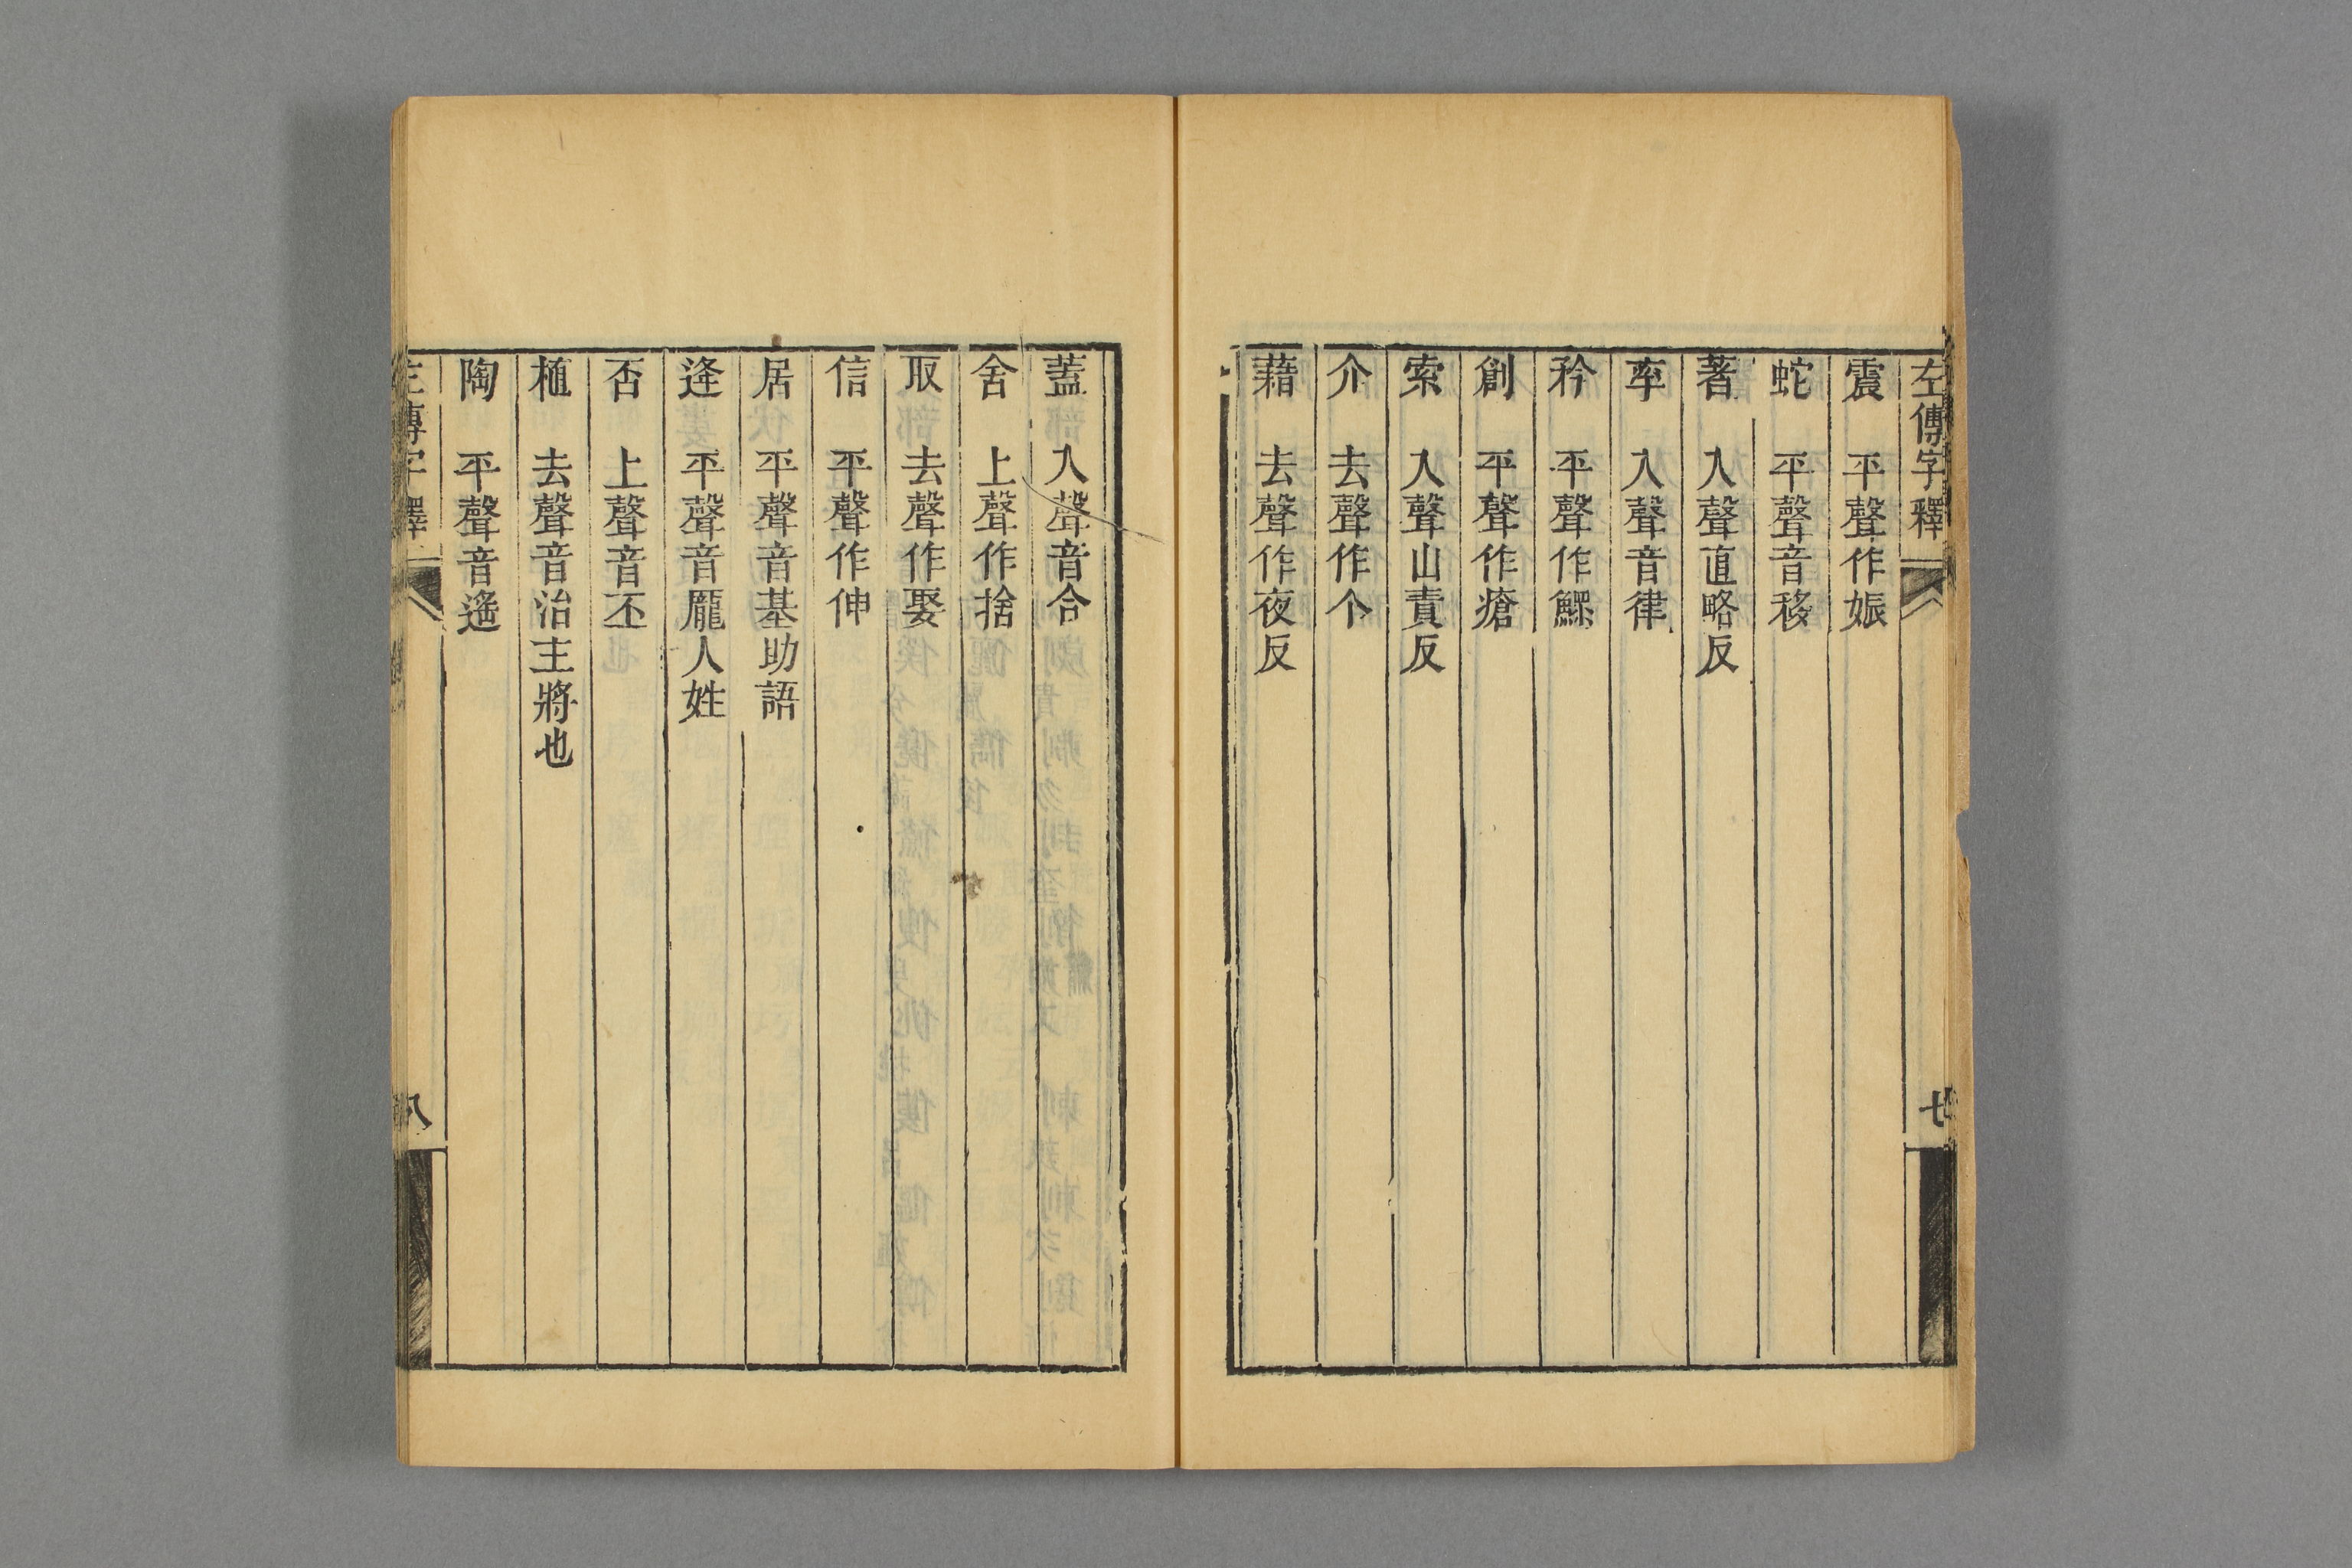 左傳字釋
七
震 平聲作娠
蛇 平聲音移
著 入聲直略反
率 入聲音律
矜 平聲作鰥
創 平聲作瘡
索 入聲山責反
介 去聲作个
藉 去聲作夜反
蓋 入聲音合
舍 上聲作捨
取 去聲作娶
信 平聲作伸
居 平聲音基助語
逄 平聲音龎人姓
否 上聲音丕
植 去聲音治主將也
陶 平聲音遙
左傳字釋
八